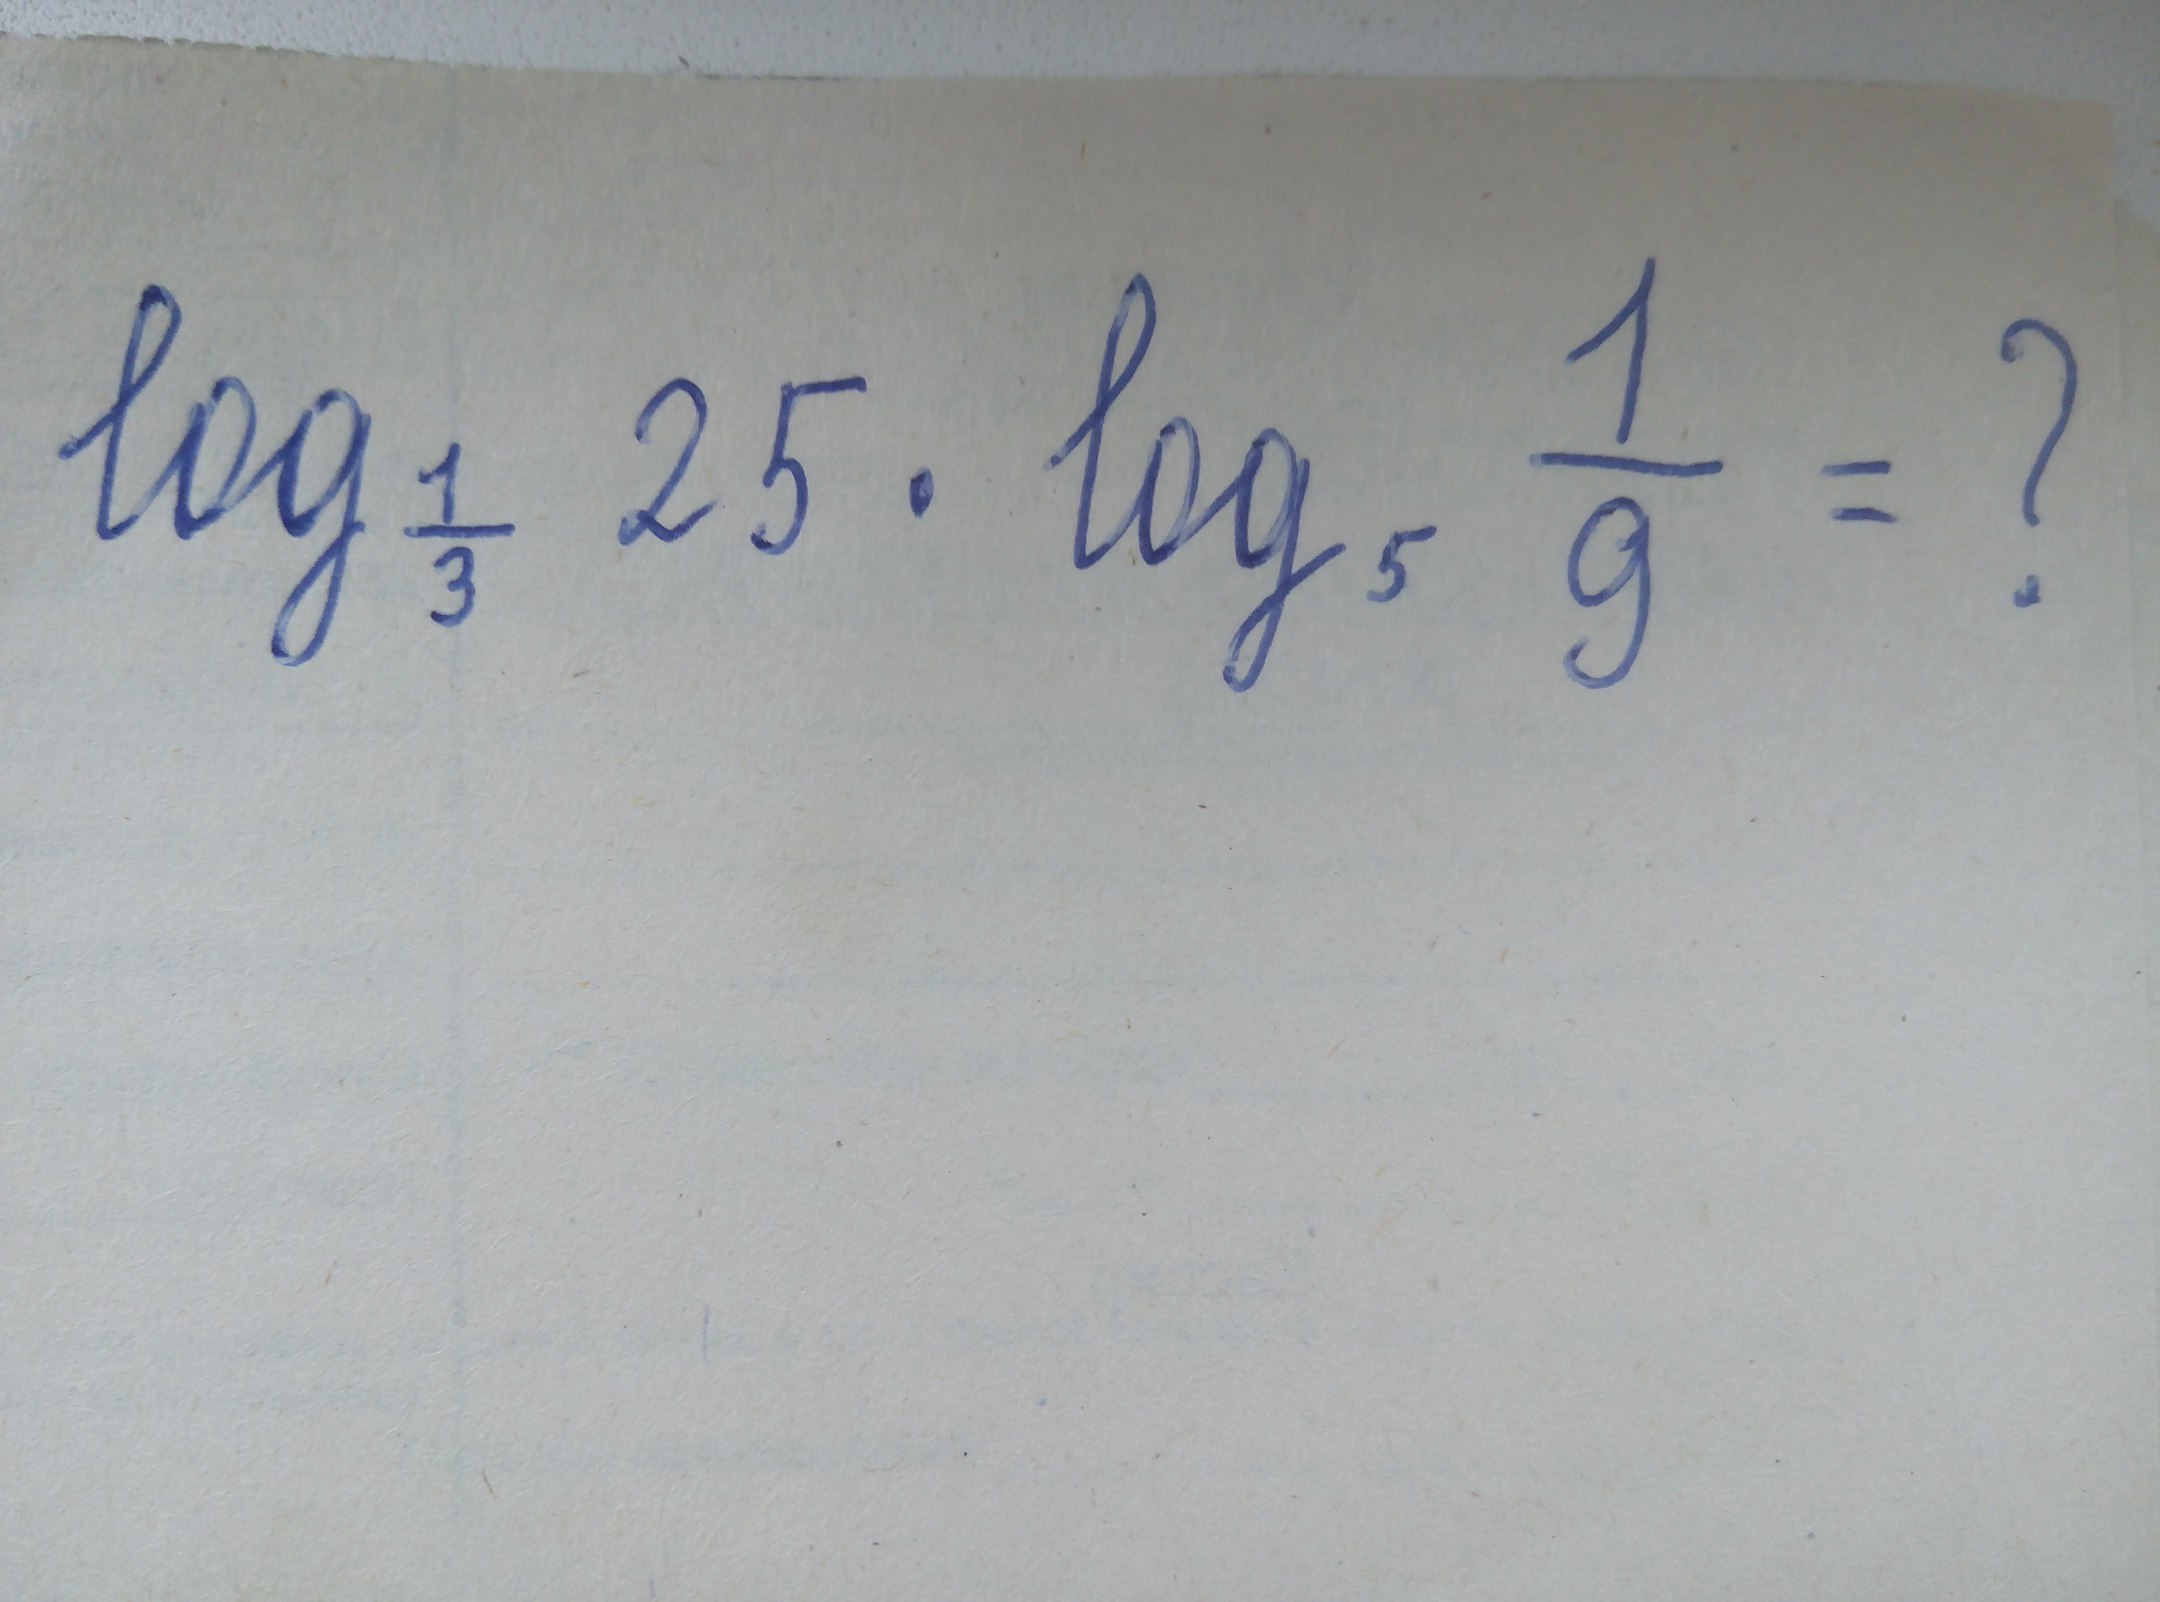 log 1/3 25 · log 5 1/9 = ?